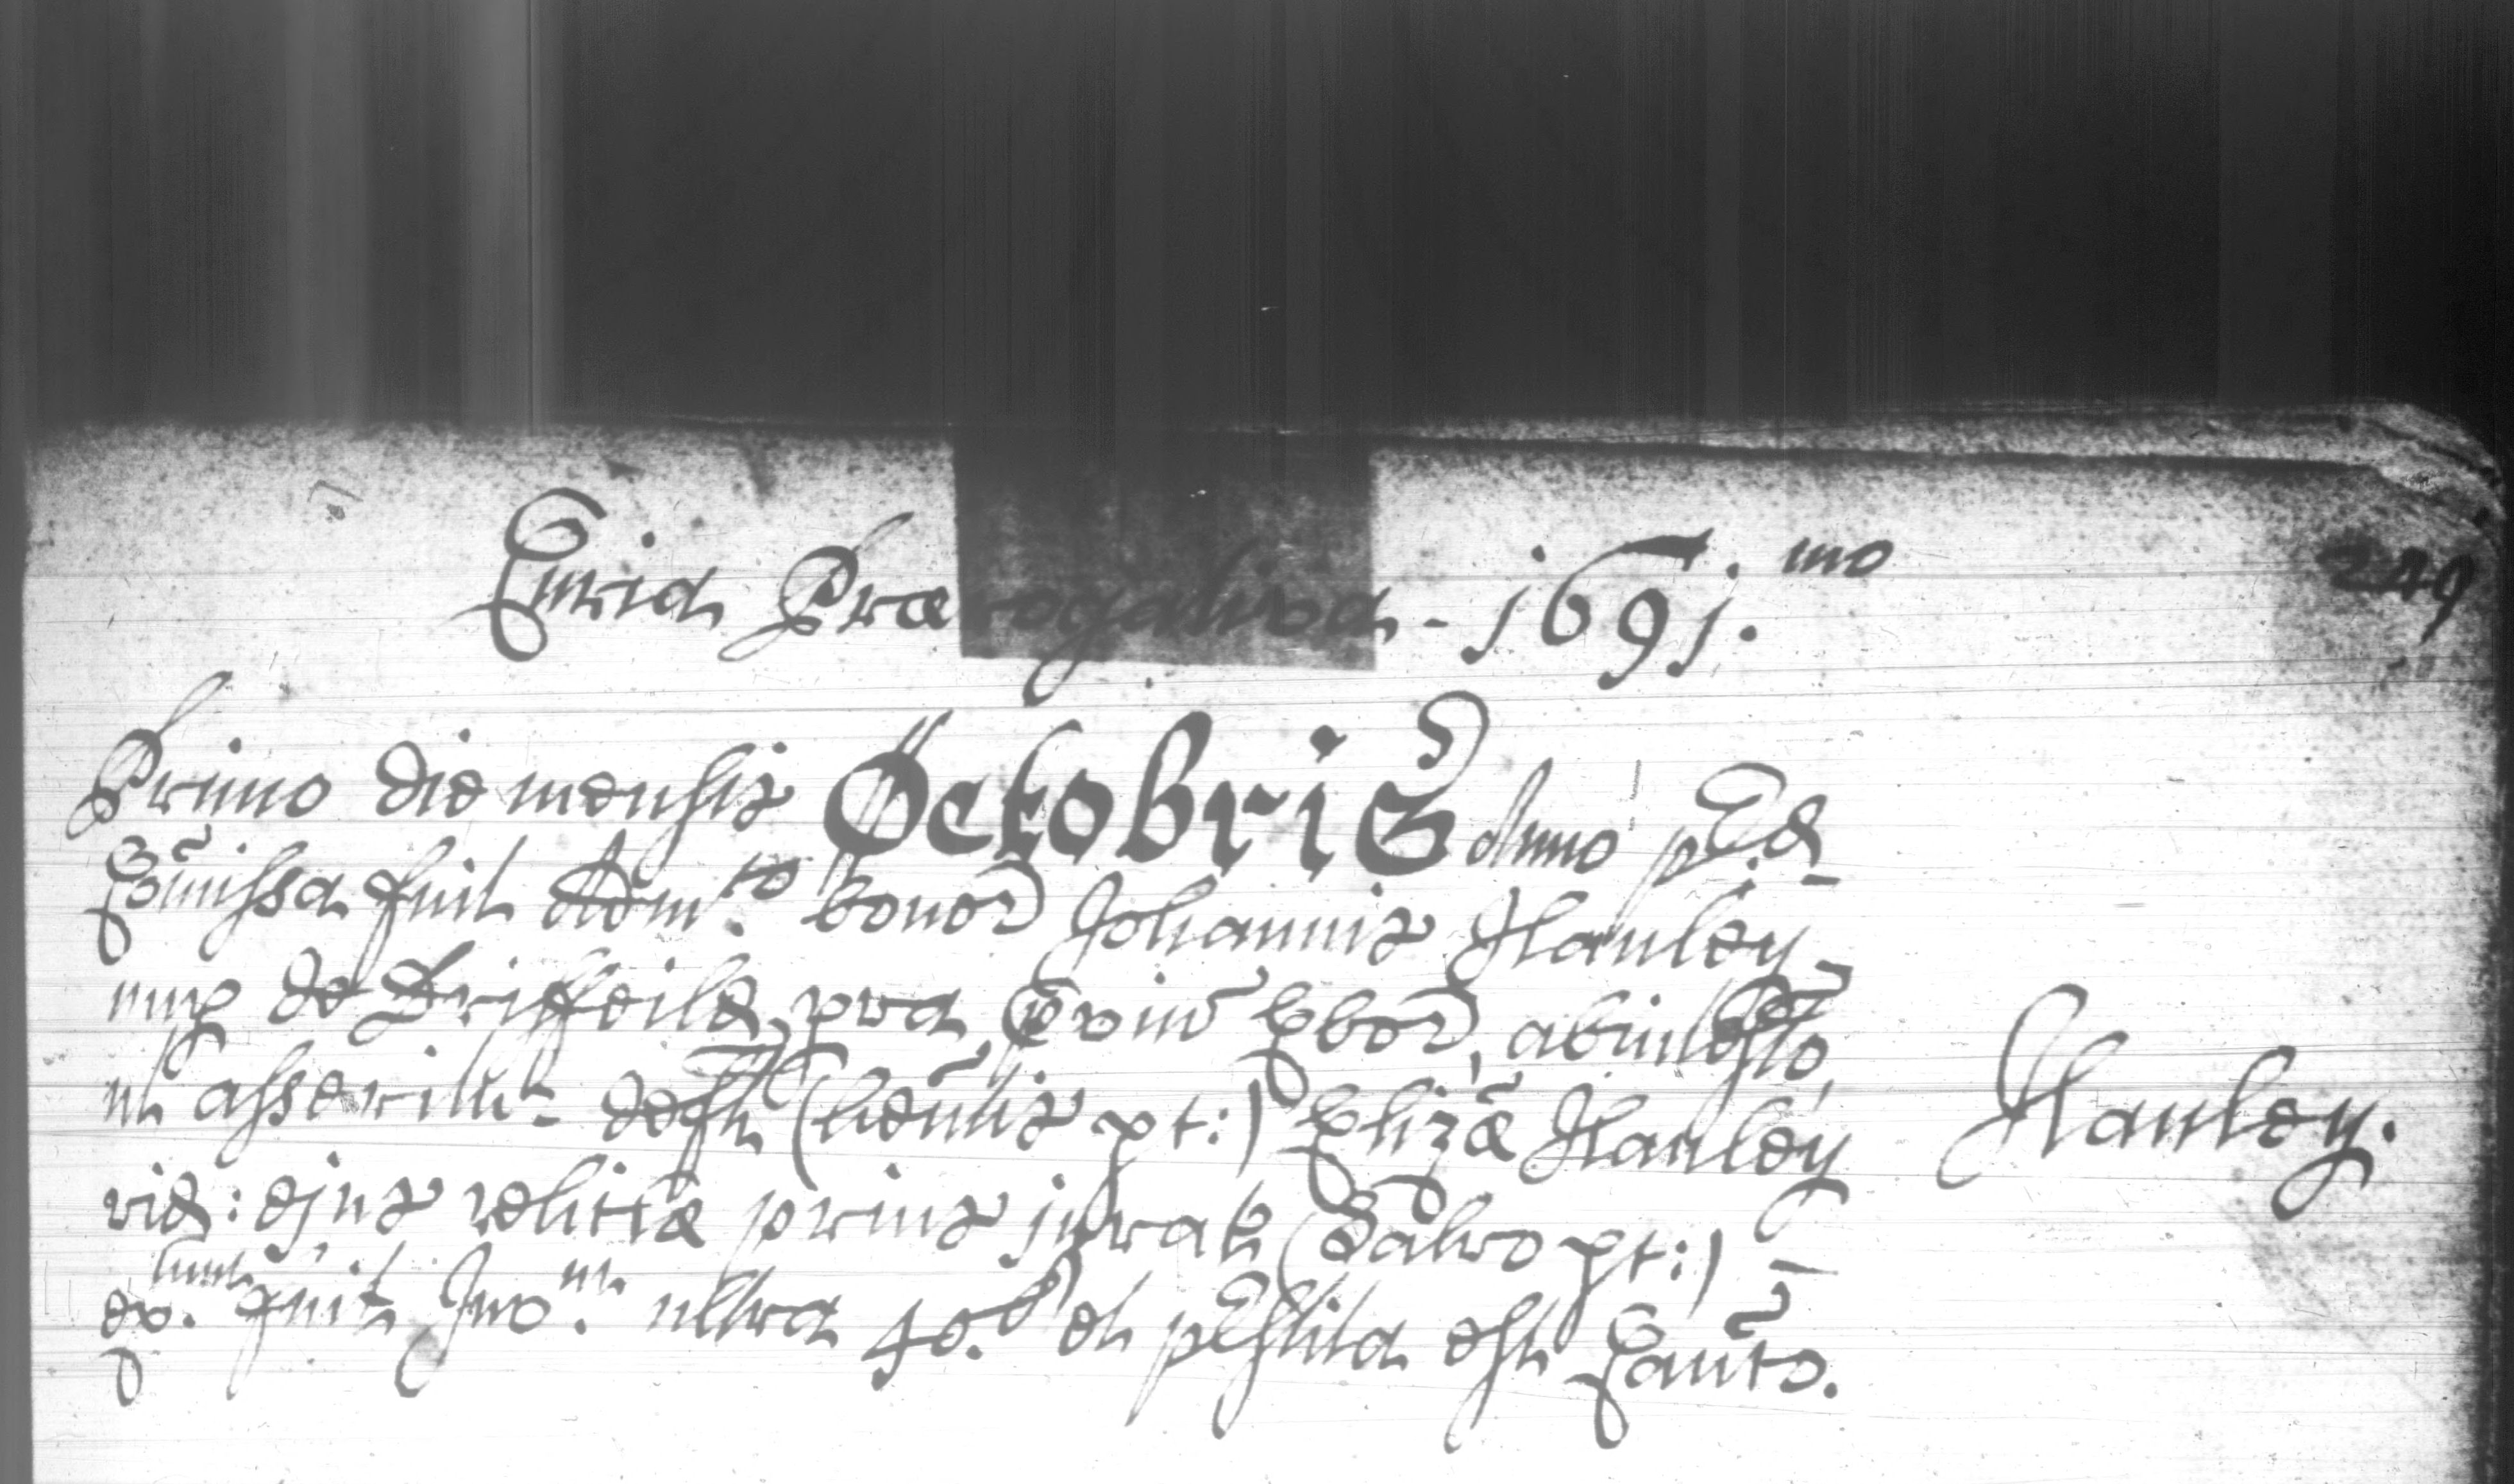 Curia Prærogativa - 1691.mo
249
Primo die mensis Octobris Anno p̄d
Com̃issa fuit Adm.co bonor Johannis Hanley
nup de Driffeild, Ebor, abintesto,
ut asseritur def̄t hen̄tis pt:) Eliz̃æ Hanley
vid: ejus relictæ prius jurat (Salvo pt:)
Hanley.
Inv.m ultra 40.£ et p̄stita est Caut̃o.